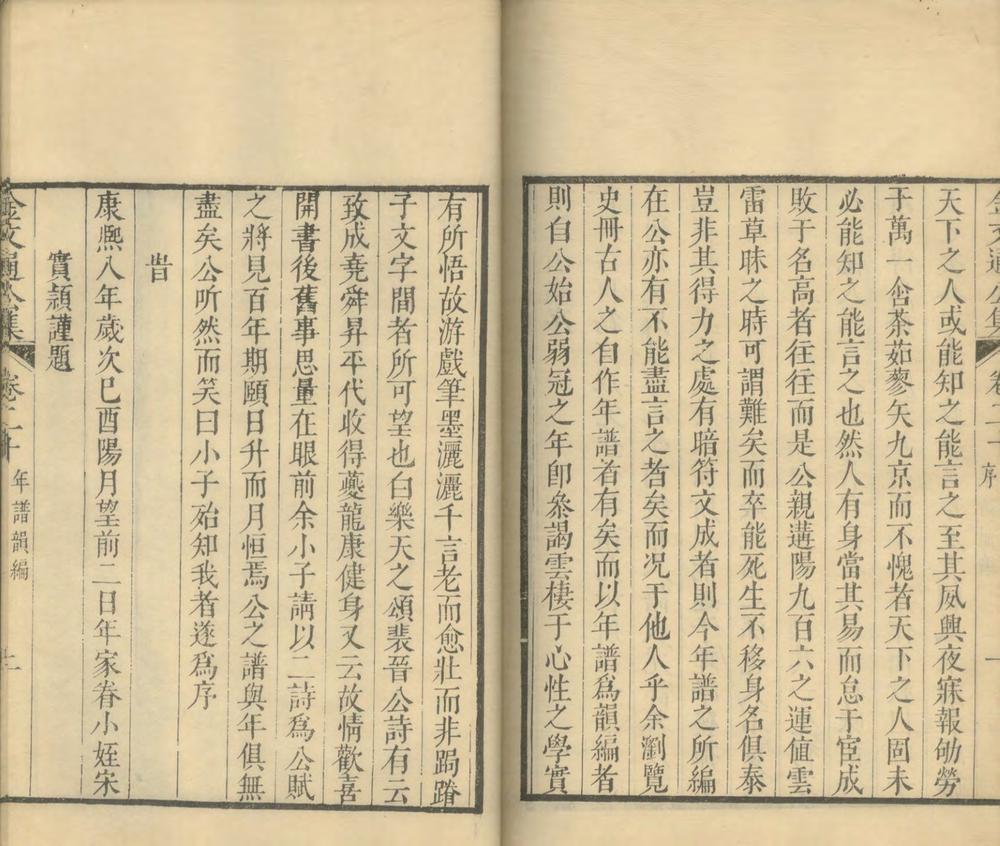 天下之人或能知之能言之至其夙興夜寐報劬勞
于萬一含茶茹蓼矢九京而不愧者天下之人固未
必能知之能言之也然人有身當其易而怠于宦成
敗于名高者往往而是公親遘陽九百六之運值雲
雷草昧之時可謂難矣而卒能死生不移身名俱泰
豈非其得力之處有暗符文成者則今年譜之所編
在公亦有不能盡言之者矣而況于他人乎余瀏覽
史冊古人之自作年譜者有矣而以年譜爲韻編者
則自公始公弱冠之年卽叅謁雲棲于心性之學實
有所悟故游戲筆墨灑灑千言老而愈壯而非跼蹐
子文字間者所可望也白樂天之頌裴晉公詩有云
致成堯舜昇平代收得夔龍康健身又云故情歡喜
開書後舊事思量在眼前余小子請以二詩爲公賦
之將見百年期頤日升而月恒焉公之譜與年俱無
盡矣公听然而笑曰小子殆知我者遂爲序
旹
康熙八年歲次己酉陽月望前二日年家眷小姪宋
實穎謹題
金文通公集
卷二十
年譜韻編